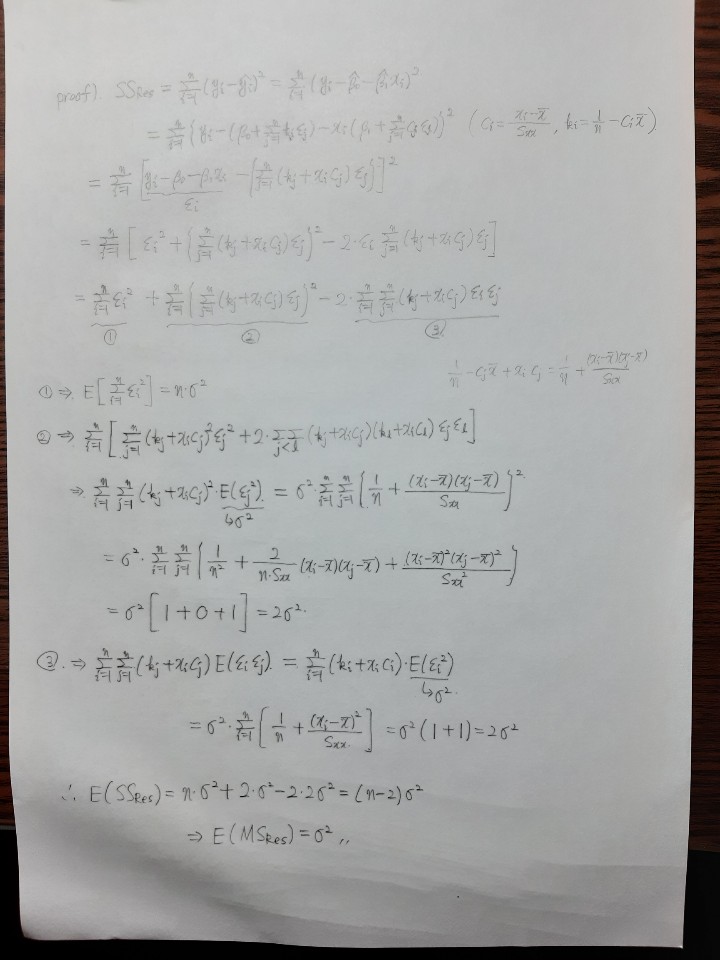 proof). SS_Res = Σ_{i=1}^{n} (y_i − ŷ_i)² = Σ_{i=1}^{n} (y_i − β̂_0 − β̂_1 x_i)²
= Σ_{i=1}^{n} { y_i − (β_0 + Σ_{j=1}^{n} k_j ε_j) − x_i (β_1 + Σ_{j=1}^{n} c_j ε_j) }² ( c_i = (x_i − x̄)/S_xx , k_i = 1/n − c_i x̄ )
= Σ_{i=1}^{n} [ y_i − β_0 − β_1 x_i − { Σ_{j=1}^{n} (k_j + x_i c_j) ε_j } ]²
ε_i
= Σ_{i=1}^{n} [ ε_i² + { Σ_{j=1}^{n} (k_j + x_i c_j) ε_j }² − 2·ε_i Σ_{j=1}^{n} (k_j + x_i c_j) ε_j ]
= Σ_{i=1}^{n} ε_i² + Σ_{i=1}^{n} { Σ_{j=1}^{n} (k_j + x_i c_j) ε_j }² − 2· Σ_{i=1}^{n} Σ_{j=1}^{n} (k_j + x_i c_j) ε_i ε_j
① ② ③
1/n − c_j x̄ + x_i c_j = 1/n + (x_i − x̄)(x_j − x̄)/S_xx
① ⇒ E[ Σ_{i=1}^{n} ε_i² ] = n·σ²
② ⇒ Σ_{i=1}^{n} [ Σ_{j=1}^{n} (k_j + x_i c_j)² ε_j² + 2· ΣΣ_{j<l} (k_j + x_i c_j)(k_l + x_i c_l) ε_j ε_l ]
⇒ Σ_{i=1}^{n} Σ_{j=1}^{n} (k_j + x_i c_j)² · E(ε_j²) = σ² · Σ_{i=1}^{n} Σ_{j=1}^{n} { 1/n + (x_i − x̄)(x_j − x̄)/S_xx }²
↳ σ²
= σ² · Σ_{i=1}^{n} Σ_{j=1}^{n} { 1/n² + 2/(n·S_xx) (x_i − x̄)(x_j − x̄) + (x_i − x̄)²(x_j − x̄)²/S_xx² }
= σ² [ 1 + 0 + 1 ] = 2σ².
③. ⇒ Σ_{i=1}^{n} Σ_{j=1}^{n} (k_j + x_i c_j) E(ε_i ε_j) = Σ_{i=1}^{n} (k_i + x_i c_i) · E(ε_i²)
↳ σ².
= σ² · Σ_{i=1}^{n} [ 1/n + (x_i − x̄)²/S_xx. ] = σ² (1 + 1) = 2σ²
∴ E(SS_Res) = n·σ² + 2·σ² − 2·2σ² = (n−2)σ²
⇒ E(MS_Res) = σ² ,,